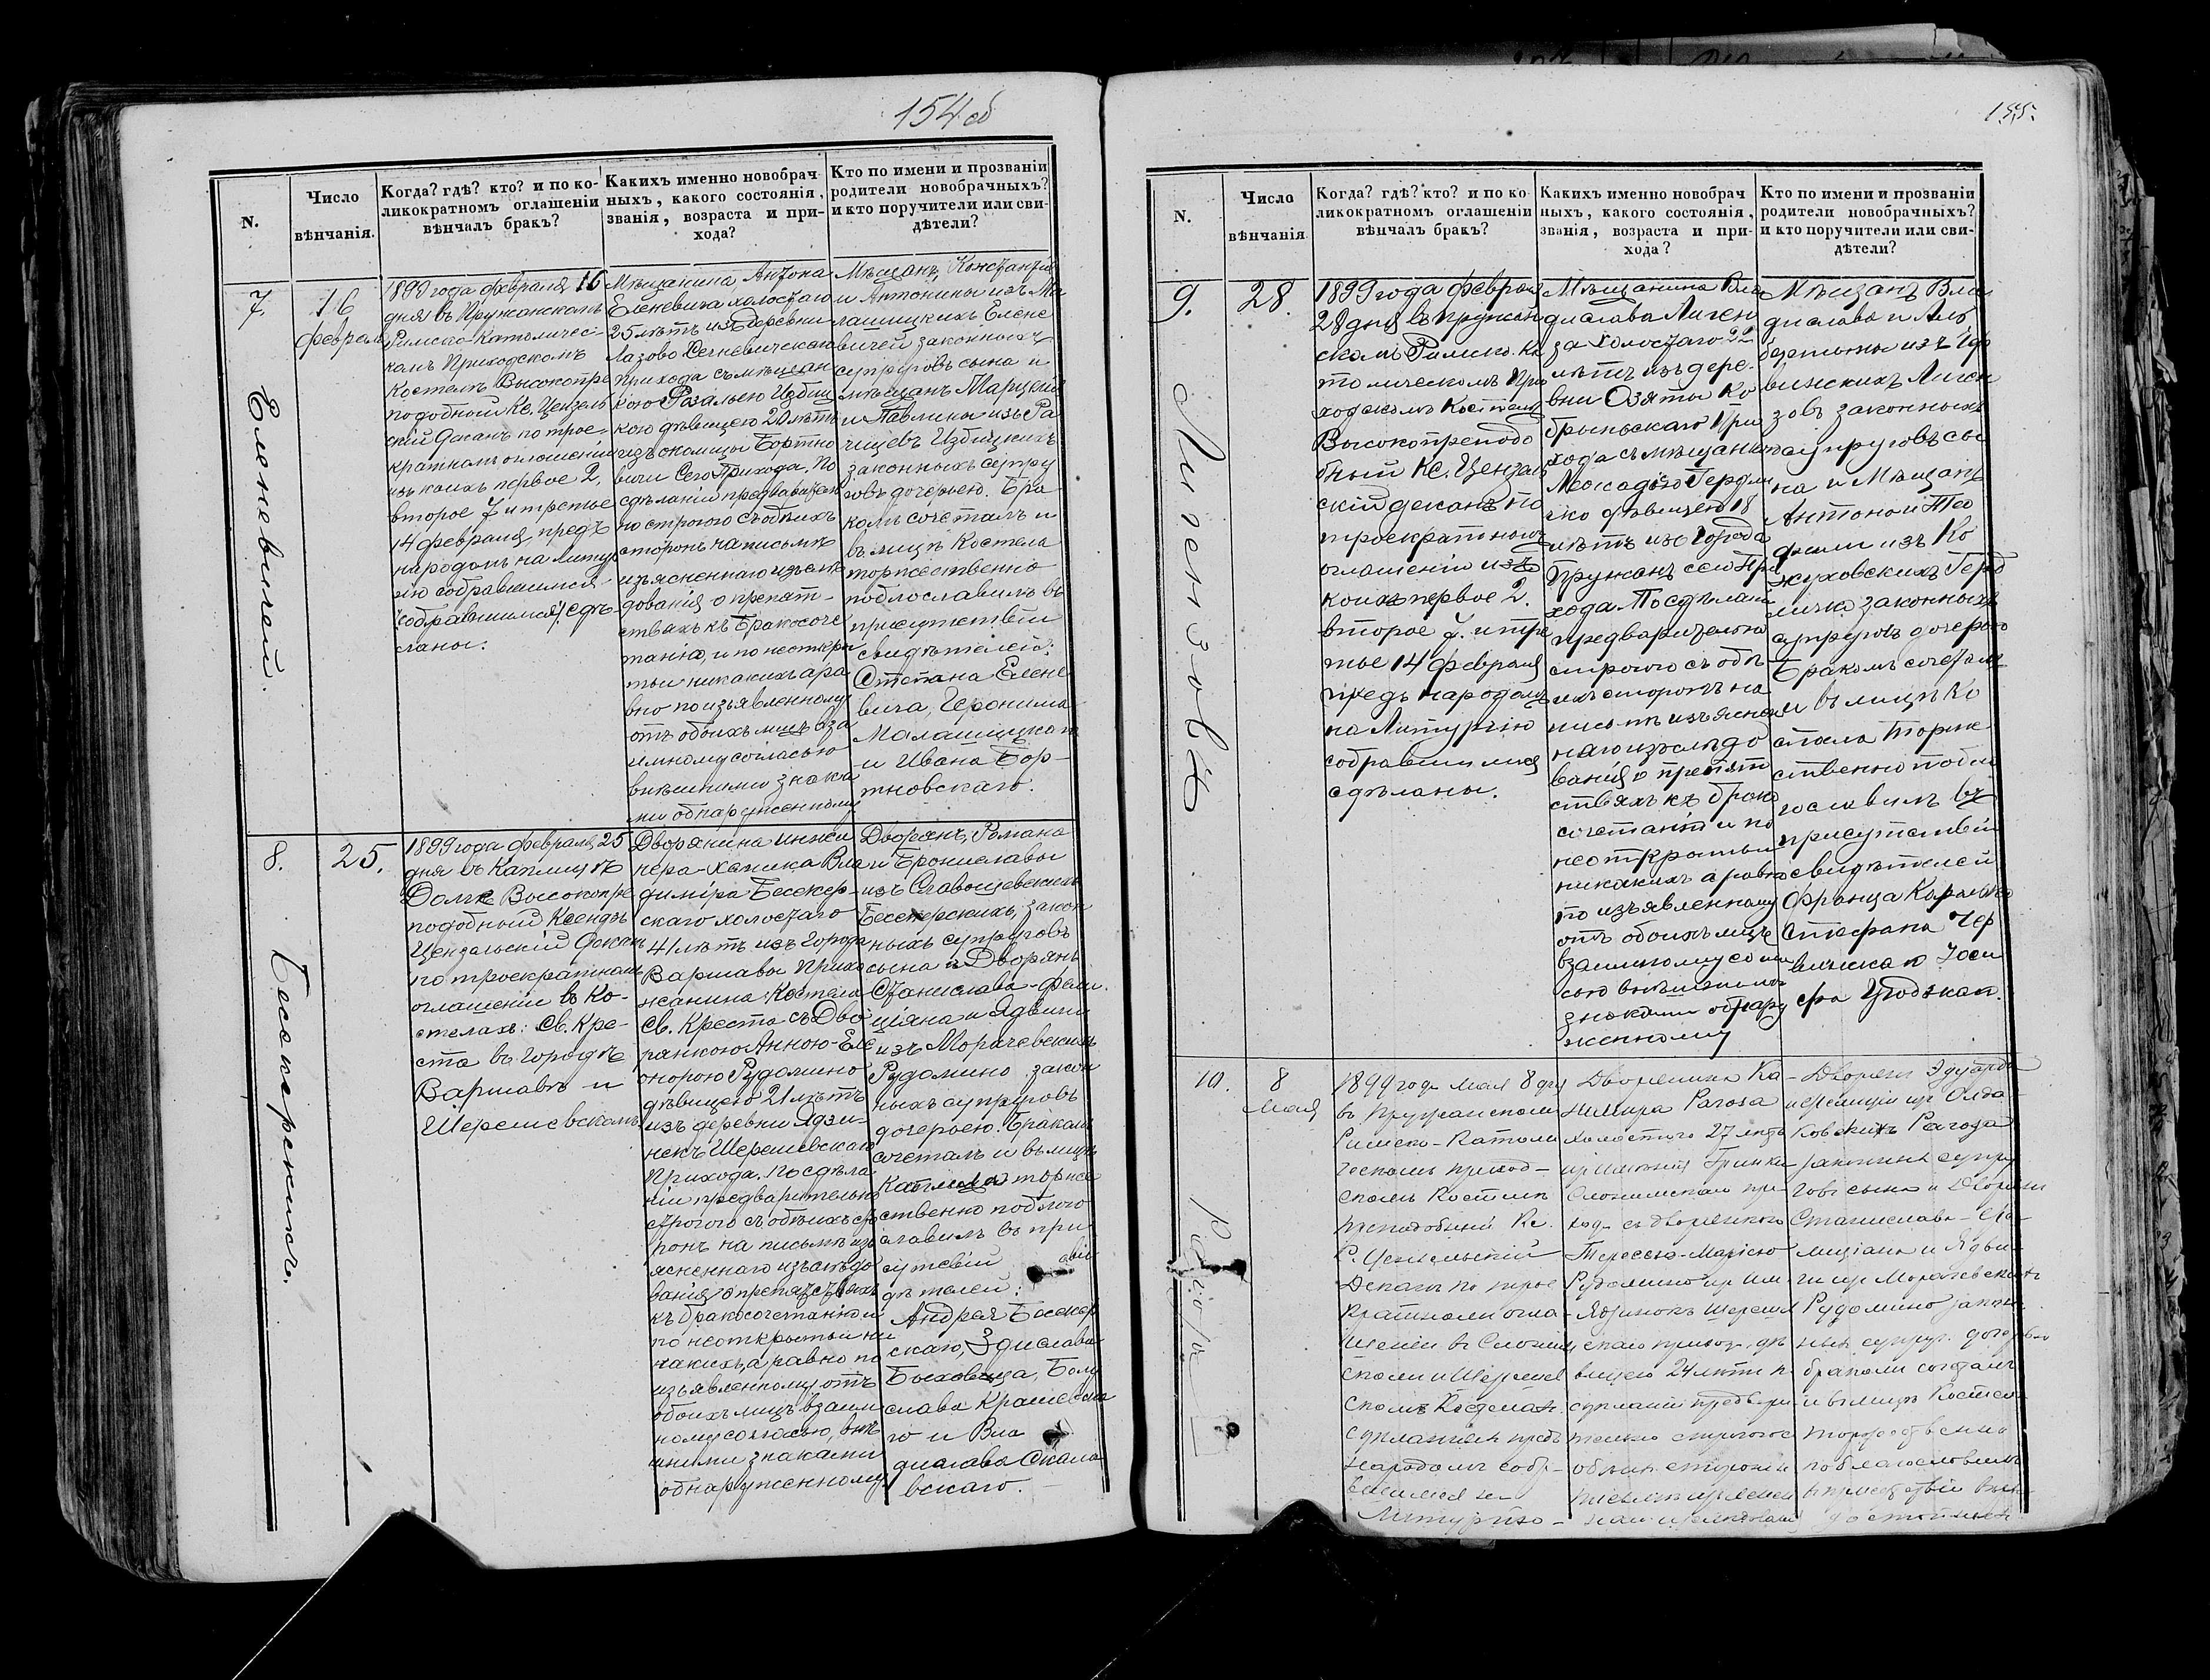 154 об
N.
Число
вѣнчанія.
Когда? гдѣ? кто? и по ко-
ликократномъ оглашеніи
вѣнчалъ бракъ?
Какихъ именно новобрач
ныхъ, какого состоянія,
званія, возраста и при-
хода?
Кто по имени и прозваніи
родители новобрачныхъ?
и кто поручители или сви-
дѣтели?
7.
Еленевичей.
16
февраля
1899 года февраля 16
дня въ Пружанскомъ
Римско-Католичес-
комъ Приходскомъ
Костелѣ Высокопре
подобный Кс. Цензель
скій Деканъ по трое-
кратномъ оглашеніи
изъ коихъ первое 2,
второе 7 и третье
14 февраля, предъ
народомъ на Литур
гію собравшимся
собравшимся, сдѣ-
ланы.
Мѣщанина Антона
Еленевича холостаго
25 лѣтъ изъ деревни
Лазово Сегневичскаго
Прихода съ мѣщан
кою Розалією Избиц
кою дѣвицею 20 лѣтъ
изъ околицы Бортно
вичи Сего Прихода. По
сдѣланіи предваритель
но строгого съ обѣихъ
сторонъ на письмѣ
изъясненнаго изслѣ
дованія о препят-
ствахъ къ бракосоче
танію, и по неоткры
тіи никакихъ а ра
вно по изъявленному
отъ обоихъ лицъ вза
имному согласью
внѣшними знака
ми обнаруженному
Мѣщанъ, Константина
и Антонины изъ Ма
лашицкихъ Елене
вичей законныхъ
супруговъ сына и
мѣщанъ
и Павлины изъ Ра
чицевъ Избицкихъ
законныхъ супру
говъ дочерью. Бра
комъ сочеталъ и
въ лицѣ Костела
торжественно
поблословилъ въ
присутствіи
свидѣтелей:
Степана Елене
вича, Геронима
Малашицкаго
и Ивана Бор-
тновскаго.
8.
Бесекерскихъ.
25.
1899 года февраля 25
дня въ Каплицѣ
Долже Высокопре
подобный Ксендзъ
Цензельскій Деканъ
по троекратномъ
оглашеніи въ Ко-
стелахъ: Св. Кре-
ста въ городѣ
Варшавѣ и
Шерешевскомъ
Дворянина Инже
нера-Химика Вла
диміра Бесекер-
скаго холостаго
41 лѣтъ изъ города
Варшавы Прихо
жанина Костела
Св. Креста съ Дво
рянкою Анною-Еле
онорою Рудомино
дѣвицею 21 лѣтъ
изъ деревни Ядзи-
некъ Шерешевскаго
Прихода. По сдѣла
ніи предварительно
строгого съ обѣихъ сто
ронъ на письмѣ изъ
ясненнаго изслѣдо
ванія о препятствіяхъ
къ бракосочетанію и
по неоткрытіи ни
какихъ, а равно по
изъявленному отъ
обоихъ лицъ взаим
ному согласью, внѣ
шними знаками
обнаруженному
Дворянъ, Романа
и Брониславы
изъ Славощевскихъ
Бесекерскихъ, закон
ныхъ супруговъ
сына и Дворянъ
Станислава-Фели
ціяна и Ядвиги
изъ Морачевскихъ
Рудомино закон
ныхъ супруговъ
дочерью. Бракомъ
сочеталъ и въ лицѣ
Каплицы торже
ственно поблого
славилъ въ при
сутствіи
дѣтелей:
Андрея Бесекер
скаго, Здислава
Быховца, Боле
слава Крашевска
го и Вла
дислава Скала
вскаго.
155.
N.
Число
вѣнчанія
Когда? гдѣ? кто? и по ко
ликократномъ оглашеніи
вѣнчалъ бракъ?
Какихъ именно новобрач
ныхъ, какого состоянія,
званія, возраста и при-
хода?
Кто по имени и прозваніи
родители новобрачныхъ?
и кто поручители или сви-
дѣтели?
9.
Лигензовъ
28.
1899 года февраля
28 дня въ Пружан
скомъ Римско-Ка
толическомъ При
ходскомъ Костелѣ
Высокопреподо
бный Кс. Цензель
скій деканъ по
троекратномъ
оглашеніи изъ
коихъ первое 2.
второе 7. и тре
тье 14 февраля
предъ народомъ
на Литургію
собравшимся
сдѣланы.
Мѣщанина Вла
дислава Лиген
за холостаго 22
лѣтъ изъ дере-
вни Озяты Ко
брыньскаго При
хода съ мѣщанкою
Леокадіею
дѣвицею 18
лѣтъ изъ города
Пружанъ сего При
хода. По сдѣланіи
предварительно
строгого съ обѣ
ихъ сторонъ на
письмѣ изъяснен
наго изслѣдо
ванія о препят
ствяхъ къ брако
сочетанію и по
неоткрытіи
никакихъ а равно
по изъявленному
отъ обоихъ лицъ
взаимному согла
сью внѣшними
знаками обнару
женному
Мѣщанъ Вла
дислава и Аль
бертины изъ
Лиген
зовъ законныхъ
супруговъ сы
на и Мѣщанъ
Антона и Тео
филіи изъ Ко
жуховскихъ
законныхъ
супруговъ дочерью
Бракомъ сочеталъ
и въ лицѣ Ко
стела торже
ственно побла
гославилъ въ
присутствіи
свидѣтелей
Франца
Стефана Чер
и Іоси
фа
10.
Рагоза
8
мая
1899 года мая 8 дня
въ Пружанскомъ
Римско-Католи
ческомъ приход-
скомъ Костелѣ
Преподобный Кс.
Р. Цензельскій
Деканъ по трое
кратномъ огла-
шеніи въ Слоним
скомъ и Шерешев
скомъ Костелахъ
сдѣланныхъ предъ
народомъ собр-
авшимся на
Литургію-
Дворянина Ка-
зимира Рагоза
холостаго 27 лѣтъ
изъ имѣнія
Слонимскаго при-
хода съ дворянкою
Тересою-Маріею
Рудомино изъ им.
Ядзинокъ Шереш
скаго прихода, дѣ
вицею 24 лѣтъ п
сдѣланіи предвари
тельно строгого
обоихъ сторонъ
Дворянъ Эдуарда
Рагоза
законныхъ супру
говъ сына и Дворянъ
Станислава-Фе
лиціана и Ядви-
ги изъ Морачевскихъ
Рудомино закон
ныхъ супруг. дочерью
бракомъ сочеталъ
и въ лицѣ Костела
торжественно
поблагословилъ